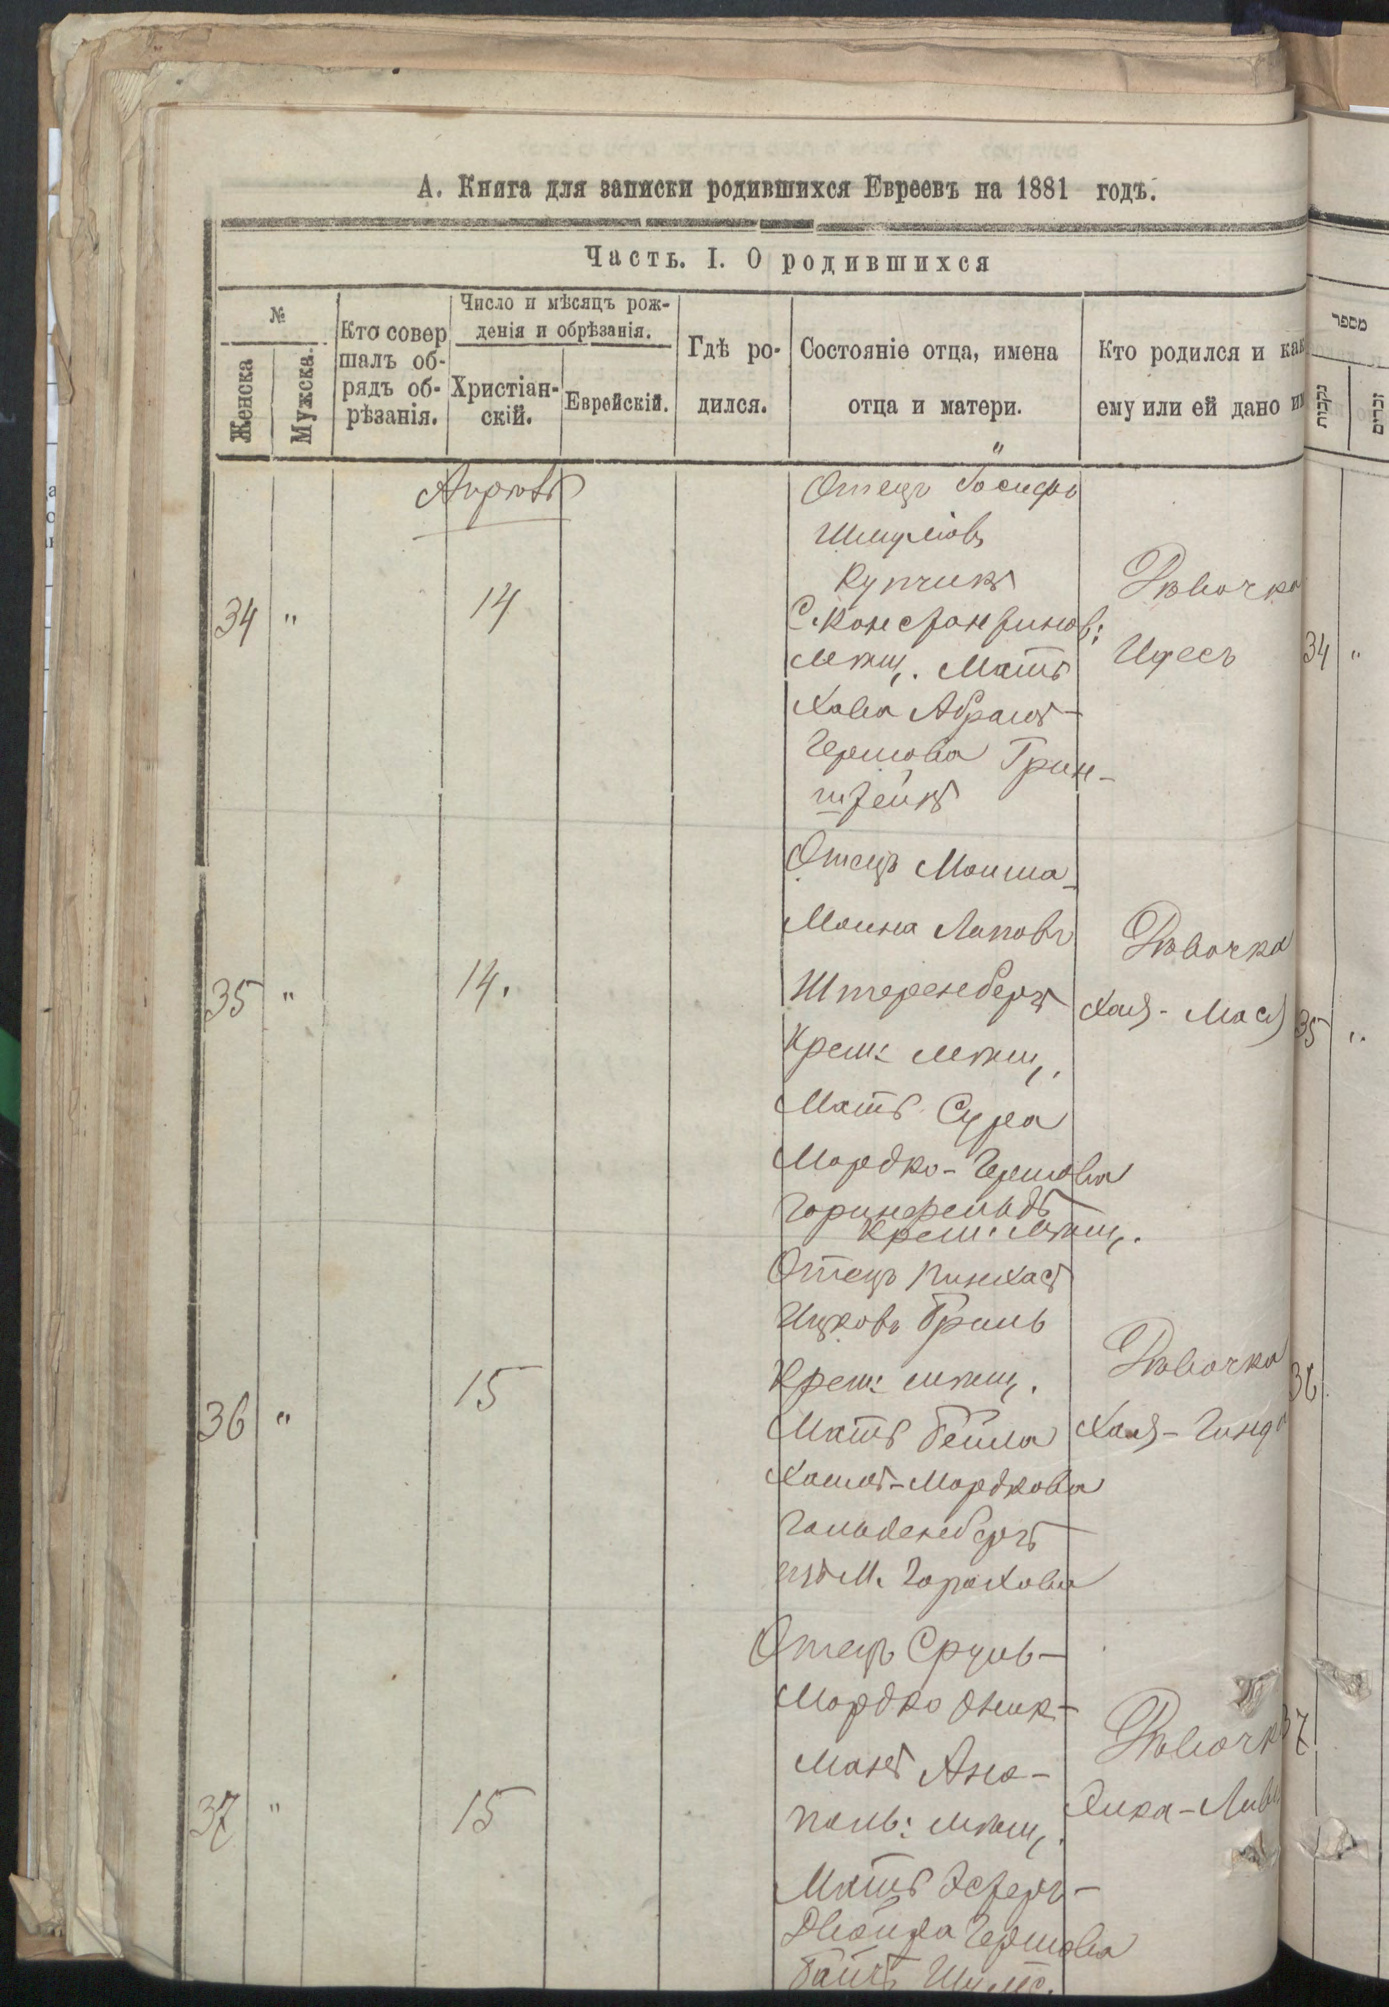 А. Книга для записки родившихся Евреевъ на 1881 годъ.
Часть. I. О родившихся
№
Женска
Мужска.
Кто совер
шалъ об-
рядъ об-
рѣзанія.
Число и мѣсяцъ рож-
денія и обрѣзанія.
Христіан-
скій.
Еврейскій.
Гдѣ ро-
дился.
Состояніе отца, имена
отца и матери.
Кто родился и как
ему или ей дано им
Апрѣль
34 " 14
Отецъ Іосифъ
Шмулiовъ
Купчикъ
С. Константинов:
мѣщ. Мать
Хава Абрамъ-
Гершова Грин-
штейнъ
Дѣвочка
Ифесъ
35 " 14.
Отецъ Мойша-
Моина Лаповъ
Штеренбергъ
Крем: мѣщ.
Мать Сура
Мордко-Гершова
Горинфельдъ
Крем: мѣщ.
Дѣвочка
Хая-Мася
36 " 15
Отецъ Пинхасъ
Ицковъ Бриль
Крем: мѣщ.
Мать Бейла
Хаимъ-Мордкова
Гольденбергъ
изъ М. Горохова
Дѣвочка
Хая-Гинда
37 " 15
Отецъ Сруль-
Мордко
манъ Ано-
поль: мѣщ.
Мать Эстеръ-
Двойра Гершова
Дѣвочк
מספר
נקבות
זכרים
34 "
35 "
36
37